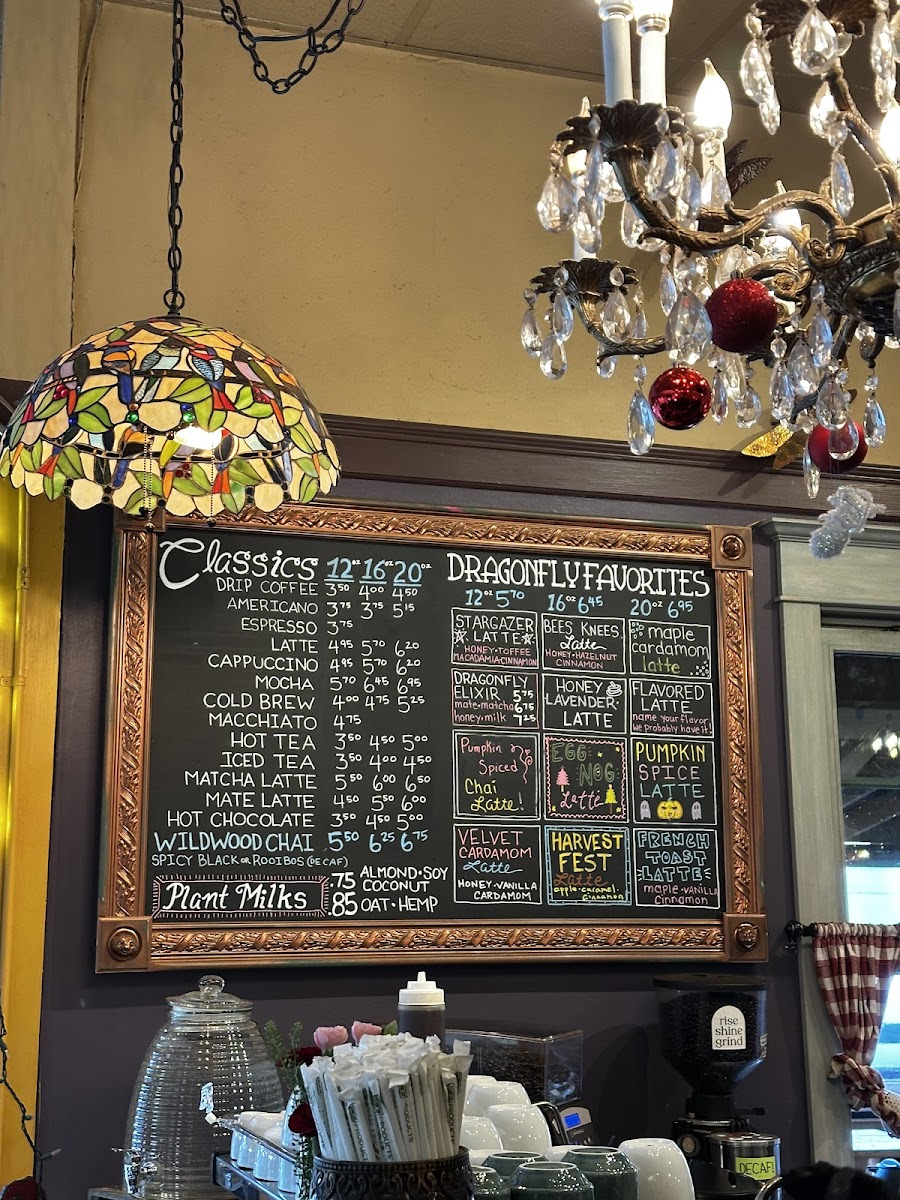 Classics 12oz 16oz 20oz
DRIP COFFEE 3.50 4.00 4.50
AMERICANO 3.75 3.75 5.15
ESPRESSO 3.75
LATTE 4.95 5.70 6.20
CAPPUCCINO 4.95 5.70 6.20
MOCHA 5.70 6.45 6.95
COLD BREW 4.00 4.75 5.25
MACCHIATO 4.75
HOT TEA 3.50 4.50 5.00
ICED TEA 3.50 4.00 4.50
MATCHA LATTE 5.50 6.00 6.50
MATE LATTE 4.50 5.50 6.00
HOT CHOCOLATE 3.50 4.50 5.00
WILDWOOD CHAI 5.50 6.25 6.75
SPICY BLACK OR ROOIBOS (DECAF)
Plant Milks
.75 ALMOND · SOY
COCONUT
.85 OAT · HEMP
DRAGONFLY FAVORITES
12oz 5.70 16oz 6.45 20oz 6.95
STARGAZER
LATTE
HONEY · TOFFEE
MACADAMIA · CINNAMON
BEES KNEES
Latte
HONEY · HAZELNUT
CINNAMON
maple
cardamom
latte
DRAGONFLY
ELIXIR 5.75
mate · matcha 6.75
honey · milk 7.25
HONEY
LAVENDER
LATTE
FLAVORED
LATTE
name your flavor,
we probably have it!
Pumpkin
Spiced
Chai
Latte!
EGG
NOG
Latte
PUMPKIN
SPICE
LATTE
VELVET
CARDAMOM
Latte
HONEY · VANILLA
CARDAMOM
HARVEST
FEST
Latte
apple · caramel
cinnamon
FRENCH
TOAST
LATTE
MAPLE · VANILLA
Cinnamon
rise
shine
grind
DECAF!